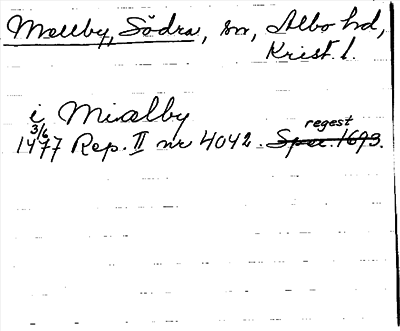 Mellby, Södra, sn, Albo hd,
Krist. l.
i Miælby
3/6 regest
1477 Rep. II nr 4042. Spec. 1693.